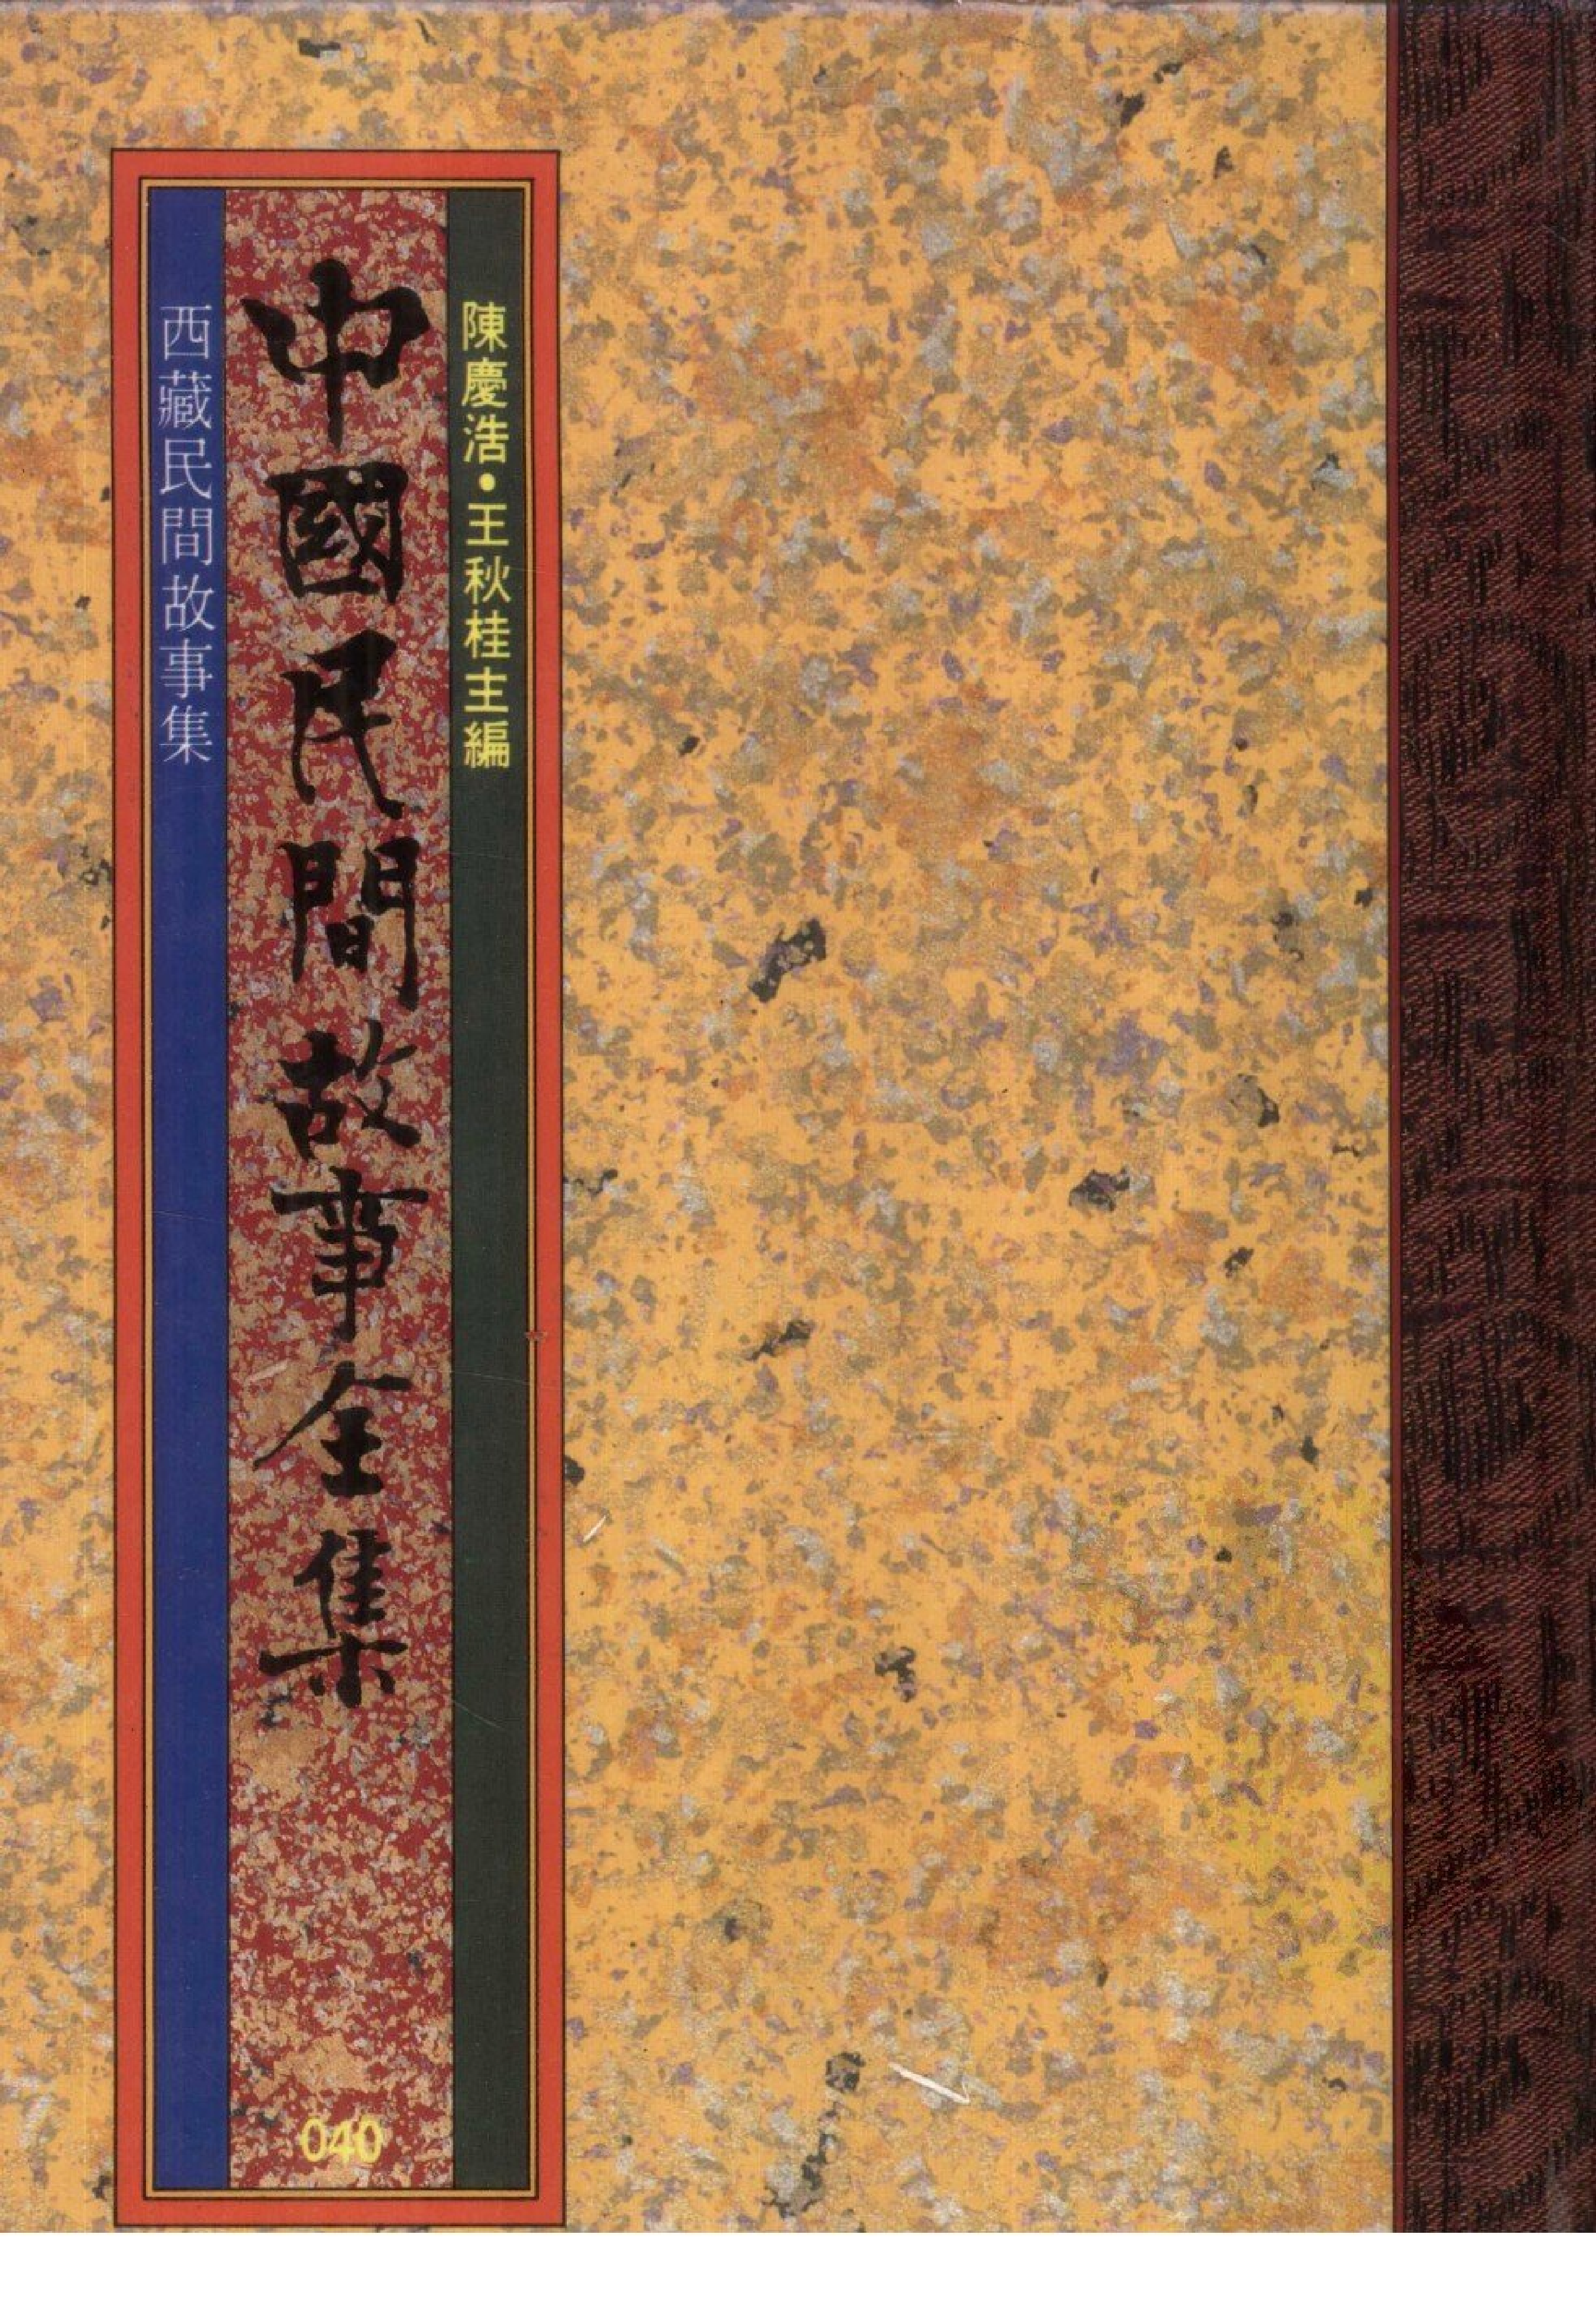 陳慶浩•王秋桂主編
中國民間故事全集
西藏民間故事集
040